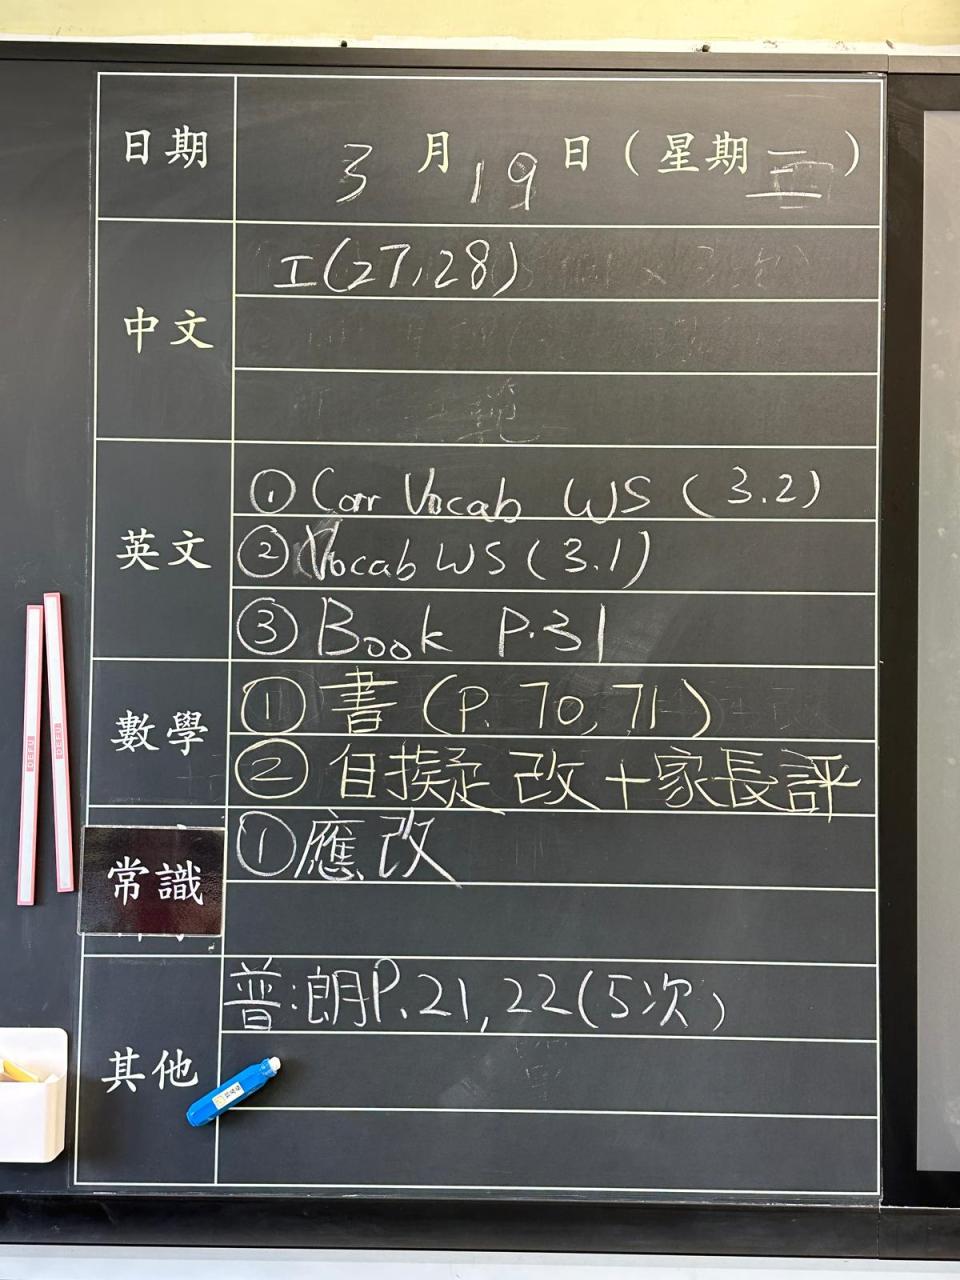 日期 3月19日(星期二)
中文
工(27,28)
英文
① Corr Vocab WS (3.2)
② Vocab WS (3.1)
③ Book P.31
數學
① 書 (P. 70, 71)
② 自擬 改 + 家長評
常識
① 應 改
其他
普:朗P.21, 22 (5次)